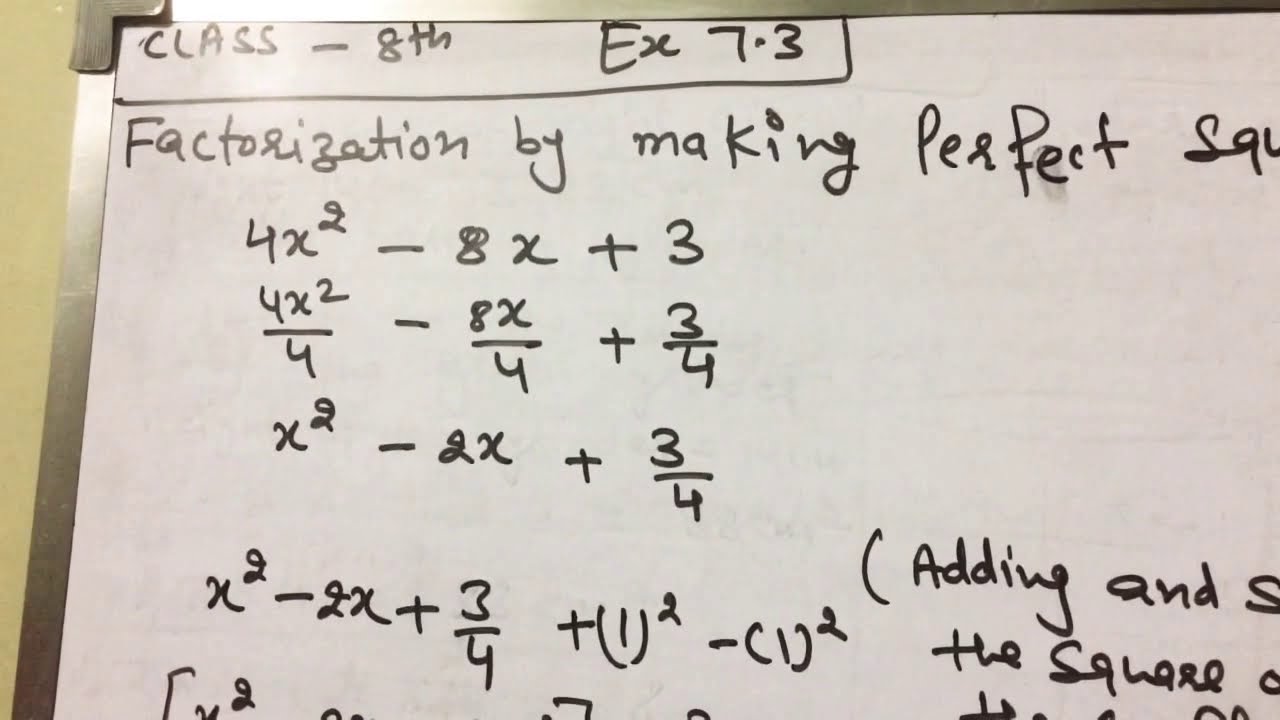 CLASS - 8th Ex 7.3
Factorization by making Perfect
4x² - 8x + 3
4x²/4 - 8x/4 + 3/4
x² - 2x + 3/4
x² - 2x + 3/4 + (1)² - (1)² (Adding and
the square
[x²